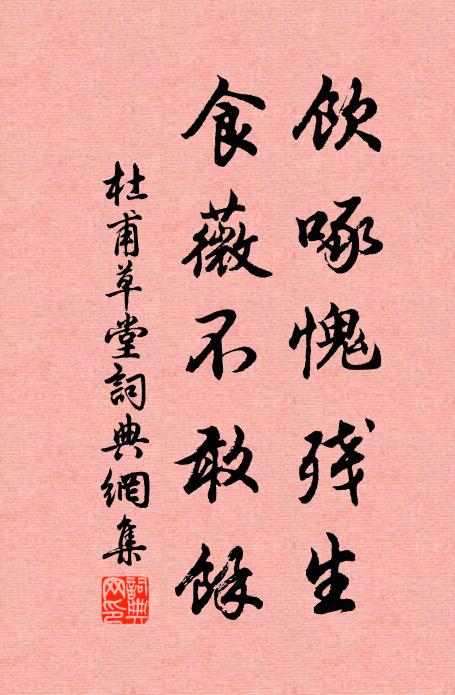 飲啄愧残生
食薇不敢餘
杜甫草堂詞典網集
詞典网印